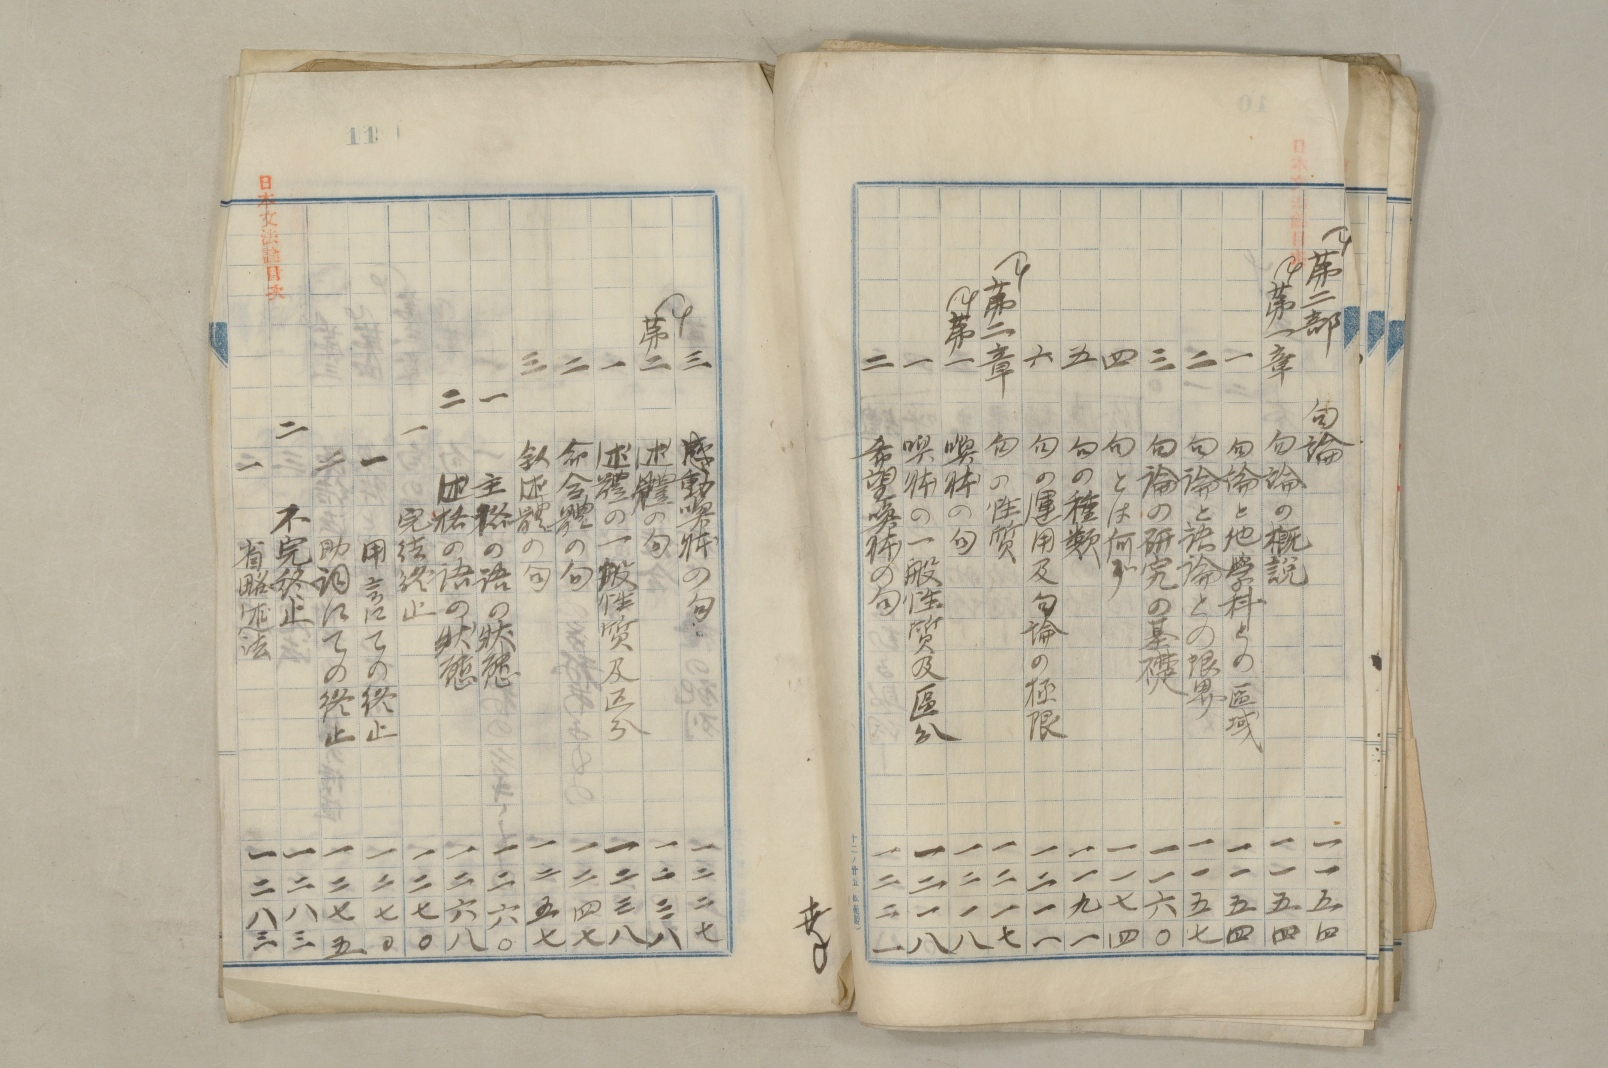 第二部 句論 一一五四
第一章 句論の概説 一一五四
一 句論と他学科との區域 一一五四
二 句論と語論との限界 一一五七
三 句論の研究の基礎 一一六〇
四 句とは何ぞ 一一七四
五 句の種類 一一九一
六 句の運用及句論の極限 一二一一
第二章 句の性質 一二一七
第一 喚体の句 一二一八
一 喚体の一般性質及區分 一二一八
二 希望喚体の句 一二二一
三 感動喚体の句 一二二七
第二 述體の句 一二三八
一 述體の一般性質及区分 一二三八
二 命令體の句 一二四七
三 叙述體の句 一二五七
一 主格の語の状態 一二六〇
二 述格の語の状態 一二六八
一 完結終止 一二七〇
一 用言にての終止 一二七〇
二 助詞にての終止 一二七五
二 不完終止 一二八三
一 省略法 一二八三
日本文法論目次
11
10